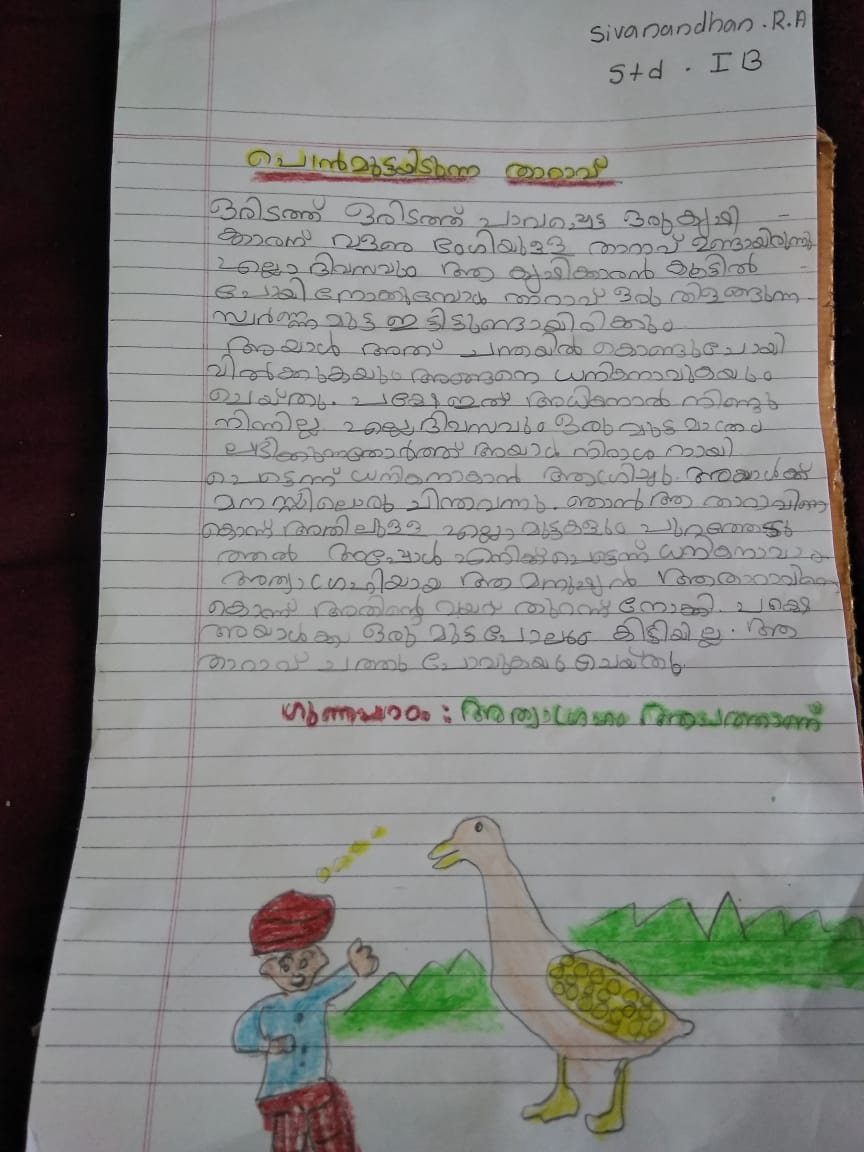 Sivanandhan . R.A
Std . I B
പൊൻമുട്ടയിടുന്ന താറാവ്
ഒരിടത്ത് ഒരിടത്ത് പാവപ്പെട്ട ഒരു കൃഷി -
ക്കാരന് വളരെ ഭംഗിയുള്ള താറാവ് ഉണ്ടായിരുന്നു
എല്ലാ ദിവസവും ആ കൃഷിക്കാരൻ കൂട്ടിൽ -
പോയി നോക്കുമ്പോൾ താറാവ് ഒരു തിളങ്ങുന്ന
സ്വർണ്ണ മുട്ട ഇട്ടിട്ടുണ്ടായിരിക്കും
അയാൾ അത് ചന്തയിൽ കൊണ്ടുപോയി
വിൽക്കുകയും അങ്ങനെ ധനികനാവുകയും
ചെയ്തു. പക്ഷേ ഇത് അധികനാൾ നീണ്ടു
നിന്നില്ല എല്ലാ ദിവസവും ഒരു മുട്ട മാത്രം
ലഭിക്കുന്നതോർത്ത് അയാൾ നിരാശനായി
പെട്ടെന്ന് ധനികനാകാൻ ആഗ്രഹിച്ചു. അയാൾക്ക്
മനസ്സിലൊരു ചിന്തവന്നു. ഞാൻ ആ താറാവിനെ
കൊന്ന് അതിലുള്ള എല്ലാ മുട്ടകളും പുറത്തെടു
ത്താൽ അപ്പോൾ എനിക്ക് പെട്ടെന്ന് ധനികനാവാം
അത്യാഗ്രഹിയായ ആ മനുഷ്യൻ ആ താറാവിനെ
കൊന്ന് അതിന്റെ വയർ തുറന്ന് നോക്കി. പക്ഷെ
അയാൾക്കു ഒരു മുട്ട പോലും കിട്ടിയില്ല. ആ
താറാവ് ചത്തു പോവുകയും ചെയ്തു.
ഗുണപാഠം : അത്യാഗ്രഹം ആപത്താണ്